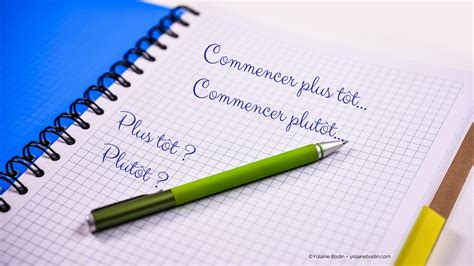 Commencer plus tôt...
Commencer plutôt...
Plus tôt ?
Plutôt ?
©Yolaine Bodin – yolainebodin.com